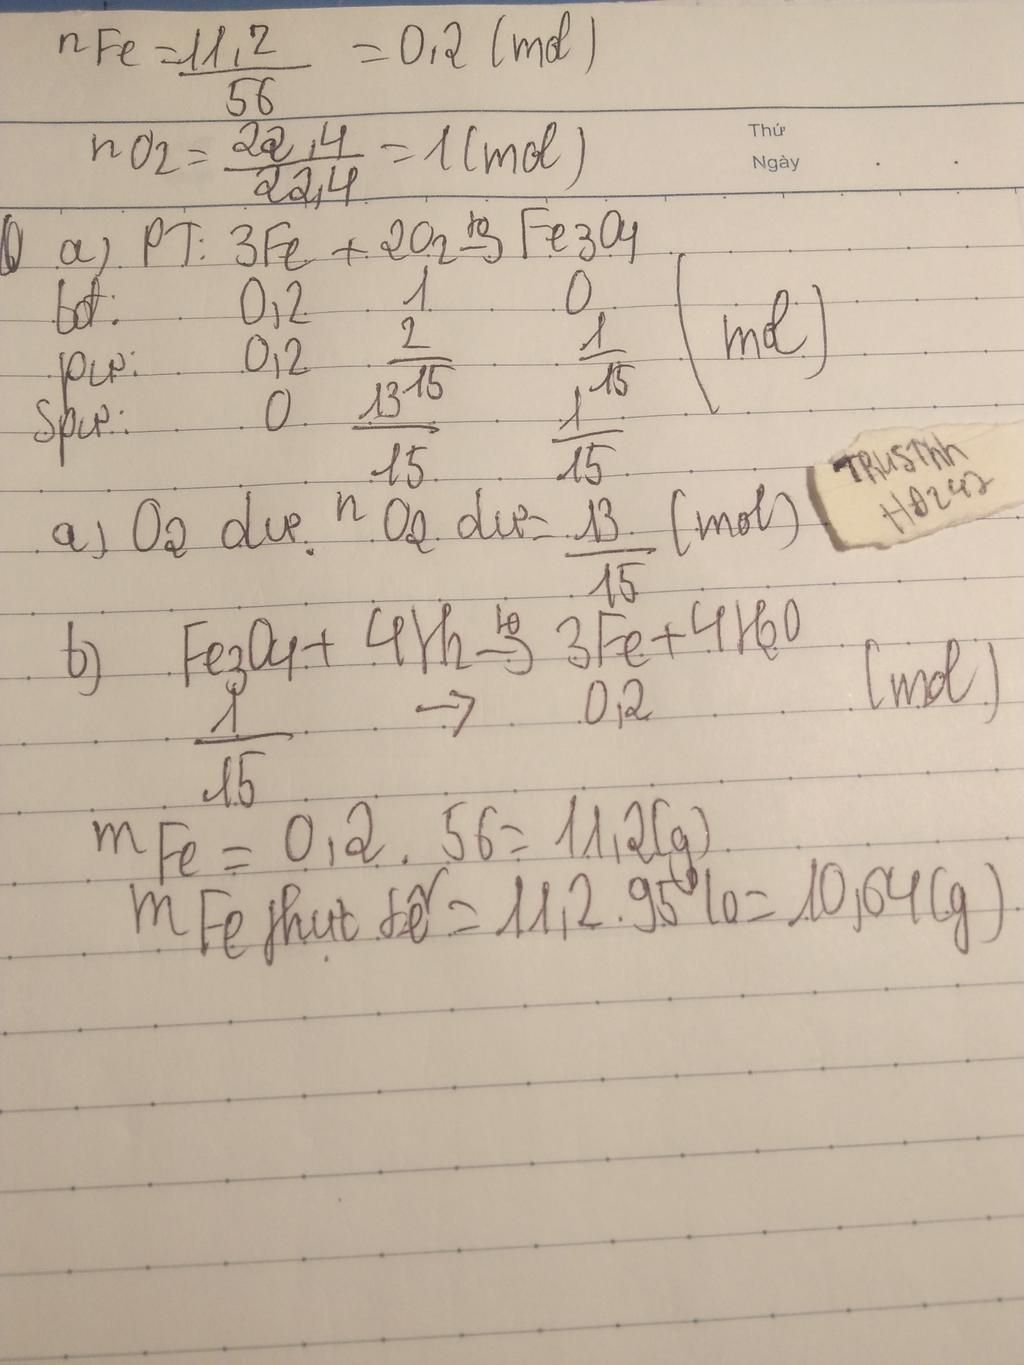 nFe = 11,2/56 = 0,2 (mol)
Thứ
nO2 = 22,4/22,4 = 1 (mol)
Ngày
a) PT: 3Fe + 2O2 →(t°) Fe3O4
bđ: 0,2 1 0
pư: 0,2 2/15 1/15 (mol)
Spư: 0 13/15 1/15
TRUSTHH
HĐ247
a) O2 dư. nO2 dư = 13/15 (mol)
b) Fe3O4 + 4H2 →(t°) 3Fe + 4H2O
1/15 → 0,2 (mol)
mFe = 0,2 . 56 = 11,2(g)
mFe thực tế = 11,2 . 95% = 10,64(g)